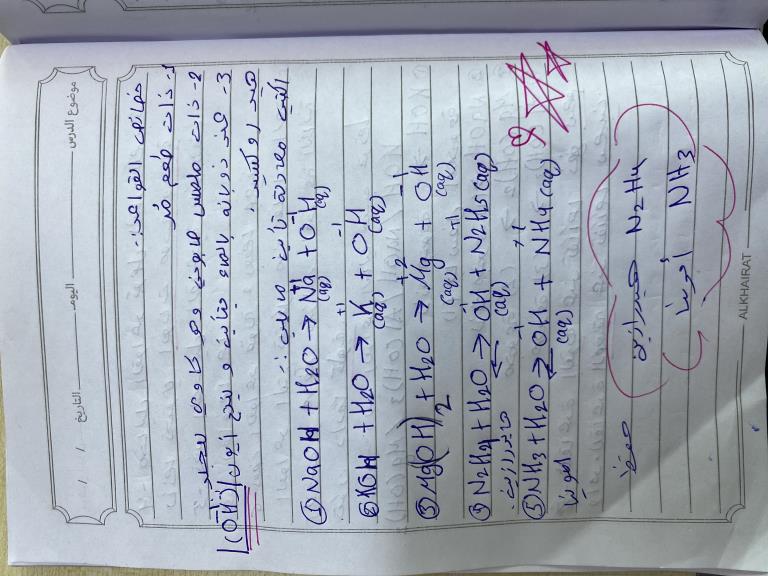 موضوع الدرس اليوم التاريخ / /
خصائص القواعد:-
1- ذات طعم مر
2- ذات ملمس صابوني وهو كاوي للجلد
3- عند ذوبانه بالماء يتأين و ينتج أيون (OH)-
هيدروكسيد.
اكتب معادلة تأين ما يلي:-
① NaOH + H2O → Na+1 (aq) + OH-1 (aq)
② KOH + H2O → K+1 (aq) + OH-1 (aq)
③ Mg(OH)2 + H2O → Mg+2 (aq) + OH-1 (aq)
④ N2H4 + H2O ⇌ OH-1 (aq) + N2H5+1 (aq)
هيدرازين.
⑤ NH3 + H2O ⇌ OH-1 (aq) + NH4+1 (aq)
امونيا
حفظ
هيدرازين N2H4
أمونيا NH3
ALKHAIRAT